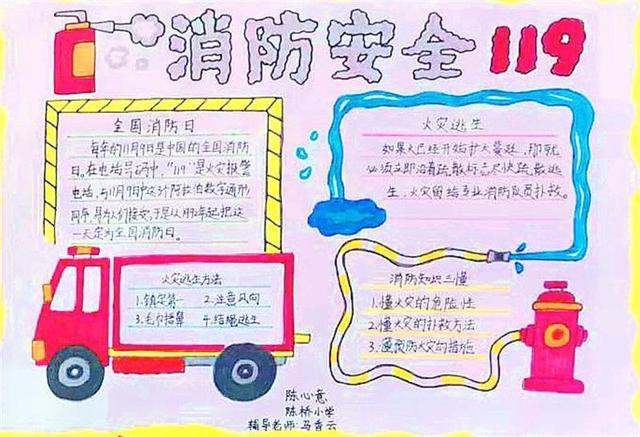 消防安全 119
全国消防日
每年的11月9日是中国的全国消防
日。在电话号码中，"119"是火灾报警
电话，与11月9日中这3个阿拉伯数字通形
同序，易为人们接受，于是从1992年起把这
一天定为全国消防日。
火灾逃生
如果火已经开始扩大蔓延，那就
必须立即沿着疏散标志尽快疏散逃
生，火灾留给专业消防队员扑救。
火灾逃生方法
1.镇定第一 2.注意风向
3.毛巾捂鼻 4.结绳逃生
消防知识三懂
1.懂火灾的危险性
2.懂火灾的扑救方法
3.懂预防火灾的措施
陈心意
陈桥小学
辅导老师：马香云